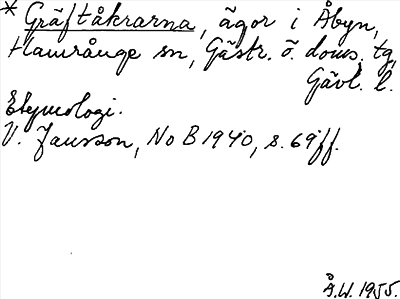 * Gräftåkrarna, ägor i Åbyn,
Hamrånge sn, Gästr. ö. doms. tg,
Gävl. l.
Etymologi.
V. Jansson, NoB 1940, s. 69ff.
Å.W. 1955.